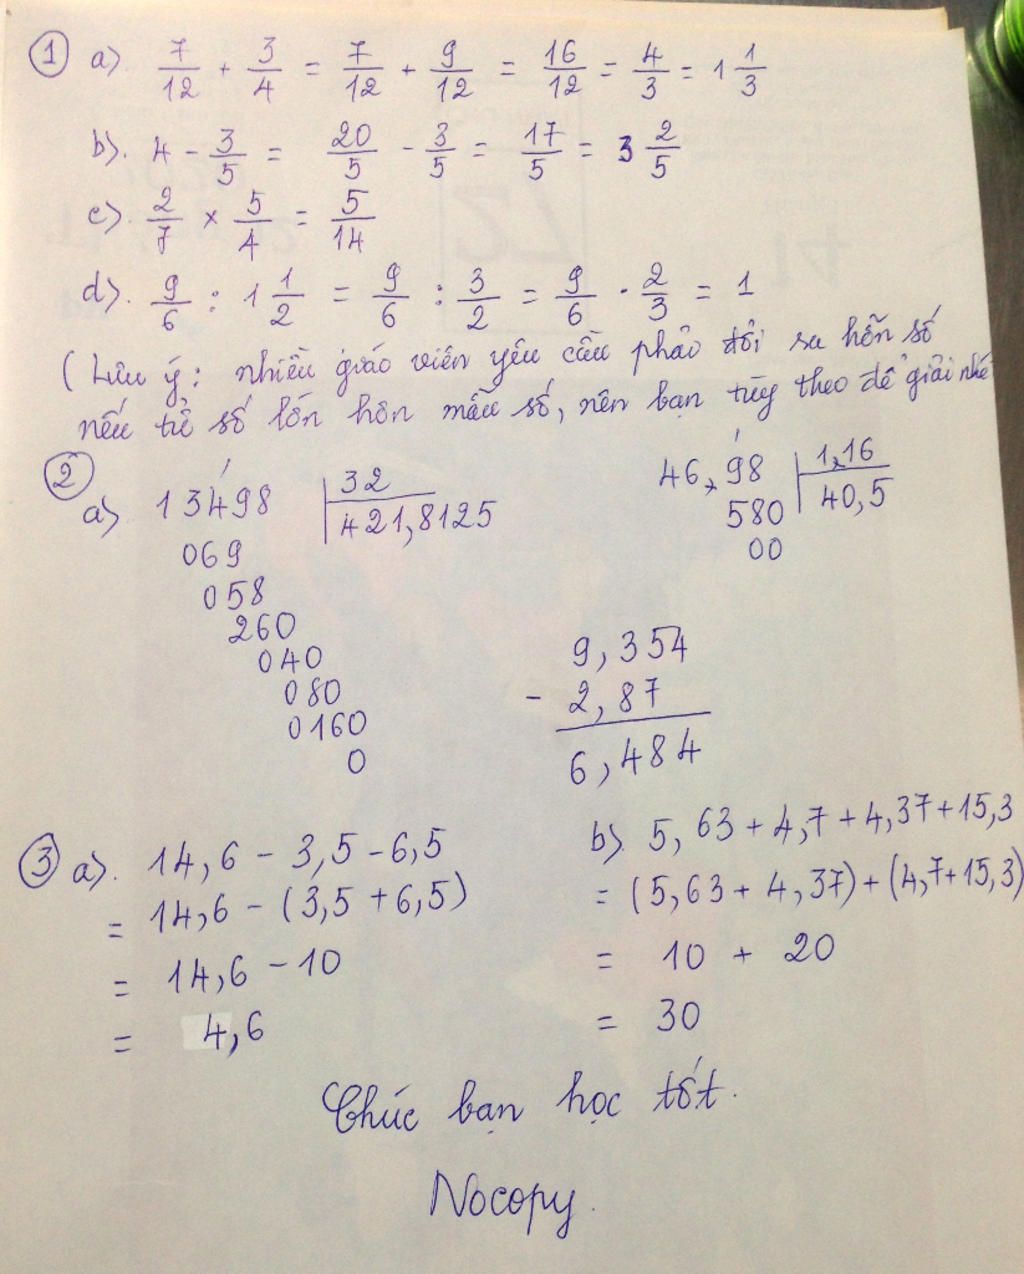 ① a). 7/12 + 3/4 = 7/12 + 9/12 = 16/12 = 4/3 = 1 1/3
b). 4 - 3/5 = 20/5 - 3/5 = 17/5 = 3 2/5
c). 2/7 × 5/4 = 5/14
d). 9/6 : 1 1/2 = 9/6 : 3/2 = 9/6 . 2/3 = 1
(Lưu ý: nhiều giáo viên yêu cầu phải đổi ra hỗn số
nếu tử số lớn hơn mẫu số, nên bạn tùy theo để giải nhé
② a) 13498 | 32
421,8125
069
058
260
040
080
0160
0
46,98 | 1,16
580 40,5
00
9,354
- 2,87
6,484
③ a). 14,6 - 3,5 - 6,5
= 14,6 - (3,5 + 6,5)
= 14,6 - 10
= 4,6
b) 5,63 + 4,7 + 4,37 + 15,3
= (5,63 + 4,37) + (4,7 + 15,3)
= 10 + 20
= 30
Chúc bạn học tốt.
Nocopy.